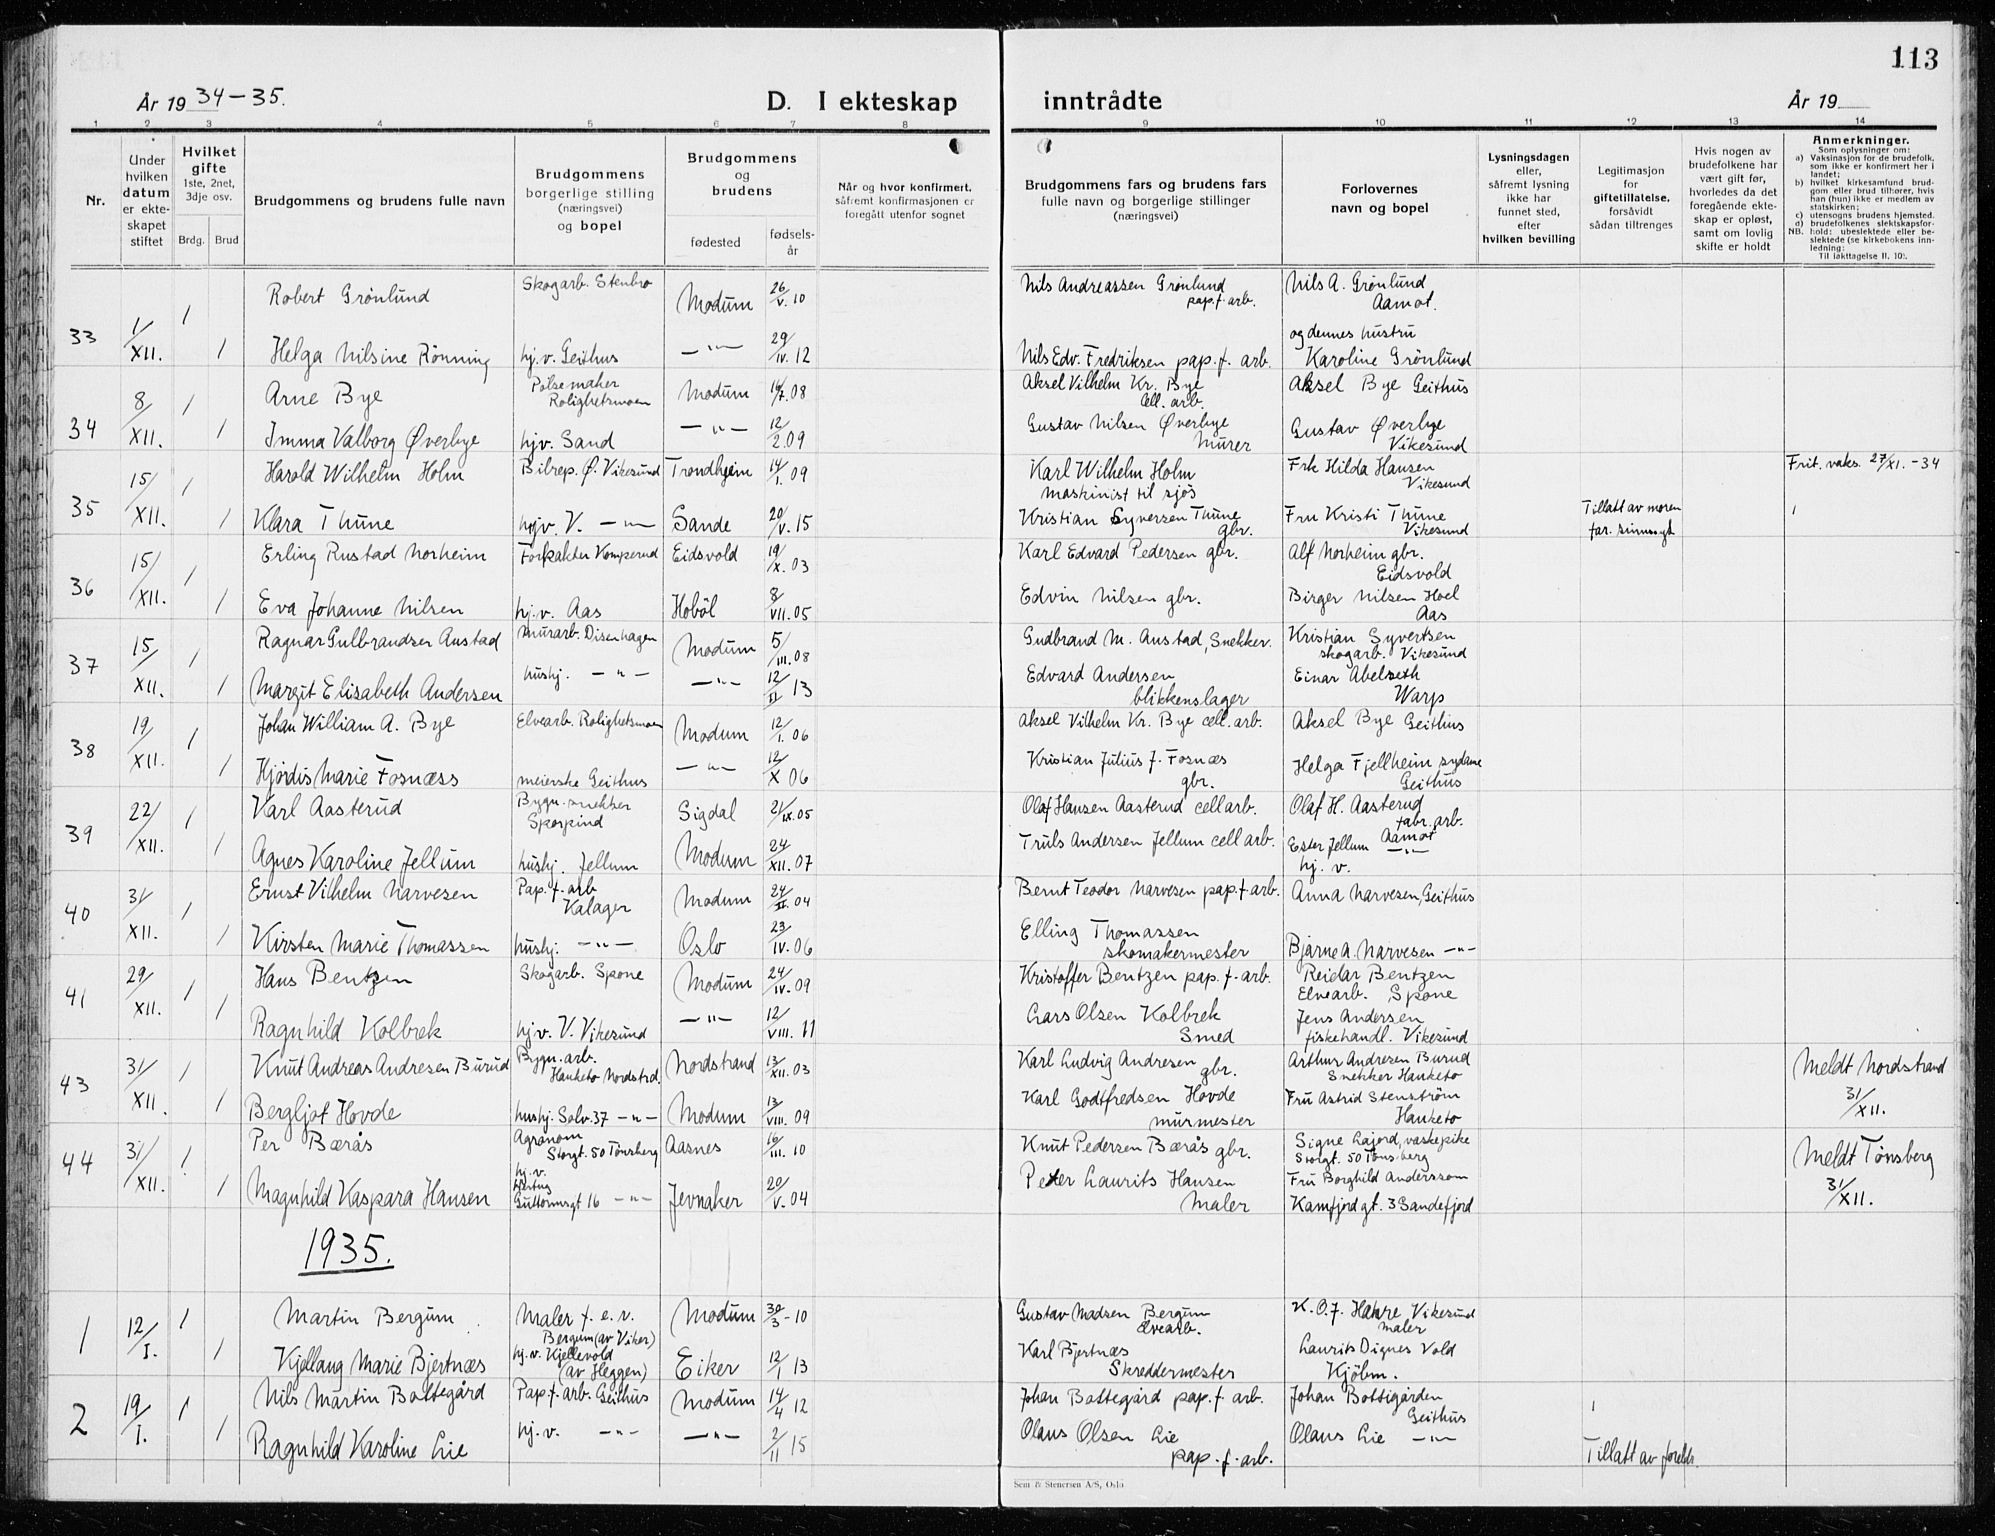 113
År 19 34-35.
D. I ekteskap inntrådte
År 19
1 2 3 4 5 6 7 8 9 10 11 12 13 14
Nr.
Under hvilken datum er ekteskapet stiftet
Hvilket gifte 1ste, 2net, 3dje osv.
Brdg. Brud
Brudgommens og brudens fulle navn
Brudgommens borgerlige stilling (næringsvei) og bopel
Brudgommens og brudens
fødested fødselsår
Når og hvor konfirmert, såfremt konfirmasjonen er foregått utenfor sognet
Brudgommens fars og brudens fars fulle navn og borgerlige stillinger (næringsvei)
Forlovernes navn og bopel
Lysningsdagen eller, såfremt lysning ikke har funnet sted, efter hvilken bevilling
Legitimasjon for giftetillatelse, forsåvidt sådan tiltrenges
Hvis nogen av brudefolkene har vært gift før, hvorledes da det foregående ekteskap er opløst, samt om lovlig skifte er holdt
Anmerkninger.
Som oplysninger om:
a) Vaksinasjon for de brudefolk, som ikke er konfirmert her i landet;
b) hvilket kirkesamfund brudgom eller brud tilhører, hvis han (hun) ikke er medlem av statskirken;
c) utensogns brudens hjemsted.
d) brudefolkenes slektskapsforhold: ubeslektede eller beslektede (se kirkebokens innledning:
NB.
Til iakttagelse II. 10).
33 1/XII. 1 Robert Grönlund Skogarb. Stenbro Modum 26/V. 10 Nils Andreassen Grönlund pap.f. arb. Nils A. Grönlund Aamot.
1 Helga Nilsine Rönning hj.v. Geithus —"— 29/IV. 12 Nils Edv. Fredriksen pap.f. arb. og dennes hustru Karoline Grönlund
34 8/XII. 1 Arne Bye Pølsemaker Rolighetsmoen Modum 08 Aksel Vilhelm Kr. Bye Cell. arb. Aksel Bye Geithus
1 Imma Valborg Øverbye hjv. Sand —"— 12/2.09 Gustav Nilsen Øverbye Murer Gustav Øverbye Vikesund
35 15/XII. 1 Harald Wilhelm Holm Bilrep. Ø. Vikesund Trondheim 14/I. 09 Karl Wilhelm Holm maskinist til sjøs Frk Hilda Hansen Vikesund Frit. vaks. 27/XI. -34
1 Klara Thune hjv. V. —"— Sande 20/V. 15 Kristian Syversen Thune gbr. Fru Kristi Thune Vikesund Tillatt av moren far. sinnssyk
36 15/XII. 1 Erling Rustad Norheim Forpakter Komperud Eidsvold 19/X. 03 Karl Edvard Pedersen gbr. Alf Norheim gbr. Eidsvold
1 Eva Johanne Nilsen hj.v. Aas Hobøl 8/VII. 05 Edvin Nilsen gbr. Birger Nilsen Hoel Aas
37 15/XII. 1 Ragnar Gulbrandsen Austad Murarb. Disenhagen Modum 5/III. 08 Gudbrand M. Austad, Snekker. Kristian Syvertsen skogarb. Vikesund
1 Margit Elisabeth Andersen hushj. —"— —"— 12/II 13 Edvard Andersen blikkenslager Einar Abelseth Warp
38 19/XII. 1 Johan William A. Bye Elvearb. Rolighetsmoen Modum 12/I. 06 Aksel Vilhelm Kr. Bye cell. arb. Aksel Bye Geithus
1 Hjördis Marie Fosnæss meierske Geithus —"— 12/X 06 Kristian Julius J. Fosnæs gbr. Helga Fjellheim sydame Geithus
39 22/XII. 1 Karl Aasterud Bygn. snekker Sporpind Sigdal 21/IX. 05 Olaf Hansen Aasterud cell arb. Olaf H. Aasterud fabr. arb. Aamot
1 Agnes Karoline Jellum hushj. Jellum Modum 24/XII. 07 Truls Andersen Jellum cell arb. Ester Jellum —"— hj. v.
40 31/XII. 1 Ernst Vilhelm Narvesen Pap.f. arb Kalager Modum 24/II. 04 Bernt Teodor Narvesen pap.f. arb. Anna Narvesen, Geithus
1 Kirsten Marie Thomassen hushj. —"— Oslo 23/IV. 06 Elling Thomassen skomakermester Bjarne A. Narvesen —"—
41 29/XII. 1 Hans Bentzen Skogarb. Spone Modum 24/IV. 09 Kristoffer Bentzen pap. f. arb. Reidar Bentzen Elvearb. Spone
1 Ragnhild Kolbrek hj v. V. Vikesund —"— 12/VIII. 11 Lars Olsen Kolbrek Smed Jens Andersen fiskehandl. Vikesund
43 31/XII. 1 Knut Andreas Andresen Burud Bygn. arb. Hauketo Nordstrd. Nordstrand 13/XII. 03 Karl Ludvig Andresen gbr. Arthur Andresen Burud Snekker Hauketo Meldt Nordstrand 31/XII.
1 Bergljot Hovde hushj. Solv. 37 —"— Modum 13/VIII. 09 Karl Godtfredsen Hovde murmester Fru Astrid Stenström Hauketo
44 31/XII. 1 Per Bærås Agronom Storgt. 50 Tønsberg Aasnes 16/III. 10 Knut Pedersen Bærås gbr. Signe Lajord, vaskepike Storgt. 50 Tønsberg Meldt Tønsberg 31/XII.
1 Magnhild Kaspara Hansen hj. v. Hertug Guttormsgt 16 —"— Jevnaker 20/V. 04 Peder Laurits Hansen Maler Fru Borghild Anderssom Kamfjordgt. 3 Sandefjord
1935.
1 12/I. 1 Martin Bergum Maler f. e. r. Bergum (av Viker) Modum 30/3-10 Gustav Madsen Bergum Elvearb. K. O. F. Hahre Vikesund maler
1 Kjellaug Marie Bjertnæs hj. v. Kjellevold (av Heggen) Eiker 12/1 13 Karl Bjertnæs Skreddermester Laurits Dignes Vold Kjöbm.
2 19/I. 1 Nils Martin Bottegård Pap.f. arb. Geithus Modum 14/4 12 Johan Bottegård pap. f. arb. Johan Bottigården Geithus
1 Ragnhild Karoline Lie hj. v. —"— —"— 2/11 15 Olaus Olsen Lie pap. f. arb. Olaus Lie —"— Tillatt av foreldr.
Sem & Stenersen A/S, Oslo